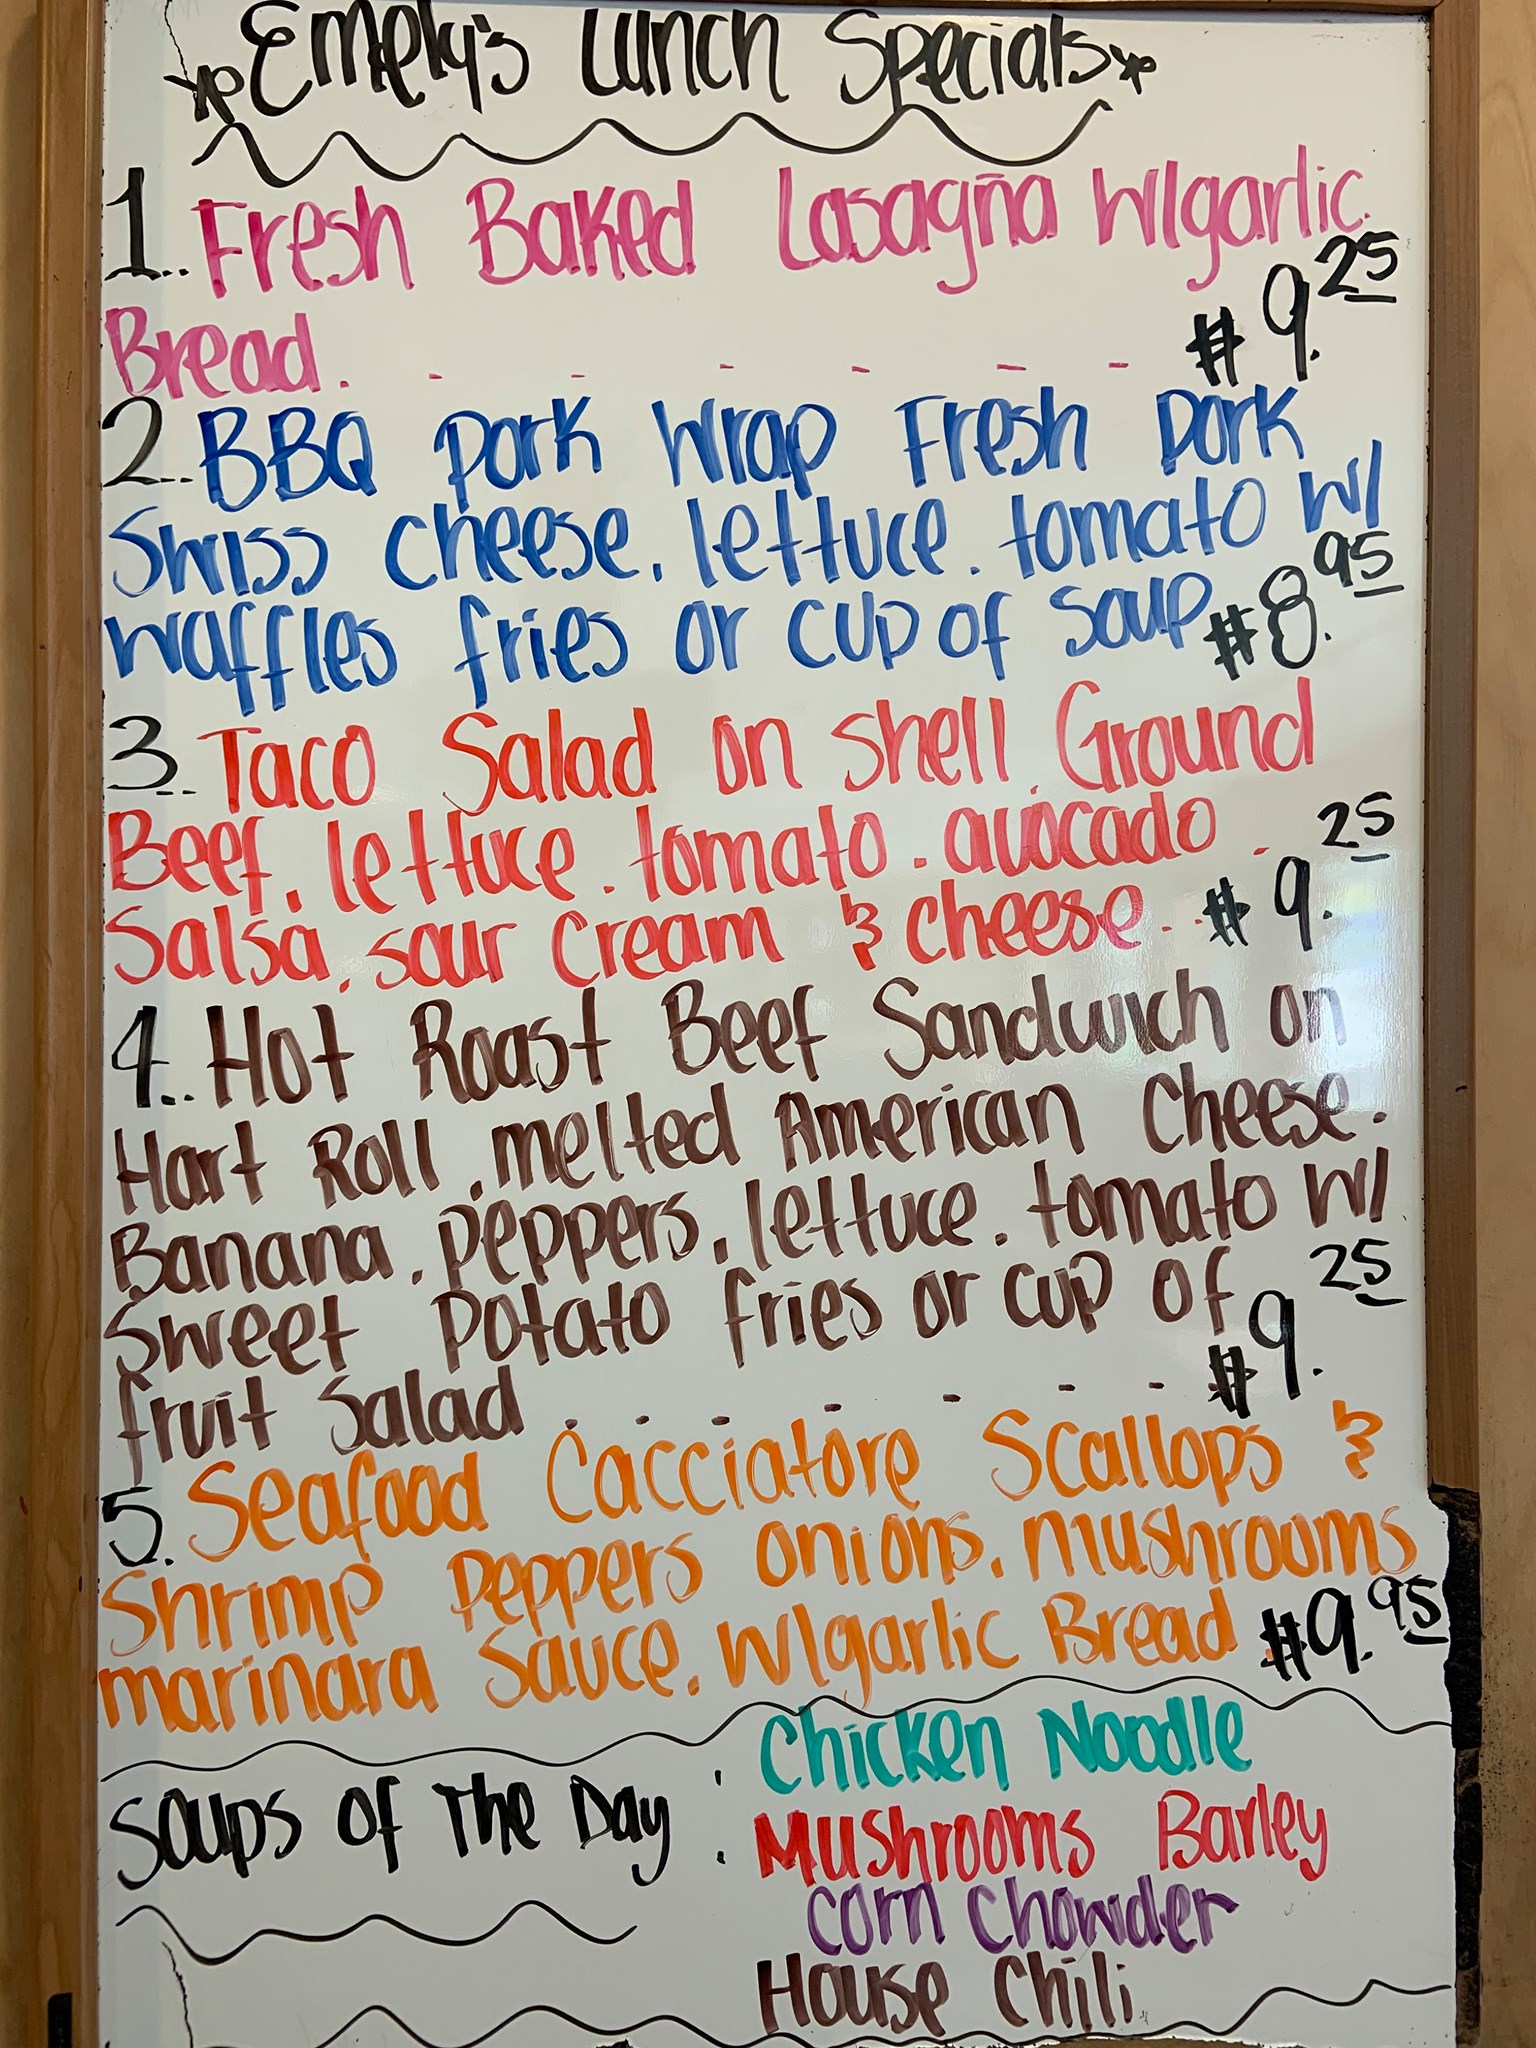 Emely's Lunch Specials
1. Fresh Baked Lasagña w/garlic
Bread. - - - - - - $9.25
2. BBQ pork wrap Fresh pork
Swiss cheese, lettuce, tomato w/
waffles fries or cup of soup $8.95
3. Taco Salad on shell, Ground
Beef, lettuce, tomato, avocado,
Salsa, sour cream & cheese. $9.25
4. Hot Roast Beef Sandwich on
Hart Roll, melted American Cheese,
Banana, peppers, lettuce, tomato w/
Sweet potato fries or cup of
fruit Salad - - - - - - $9.25
5. Seafood Cacciatore Scallops &
Shrimp peppers onions, mushrooms
marinara sauce, w/garlic Bread $9.95
Soups of The Day : Chicken Noodle
Mushrooms Barley
Corn Chowder
House Chili